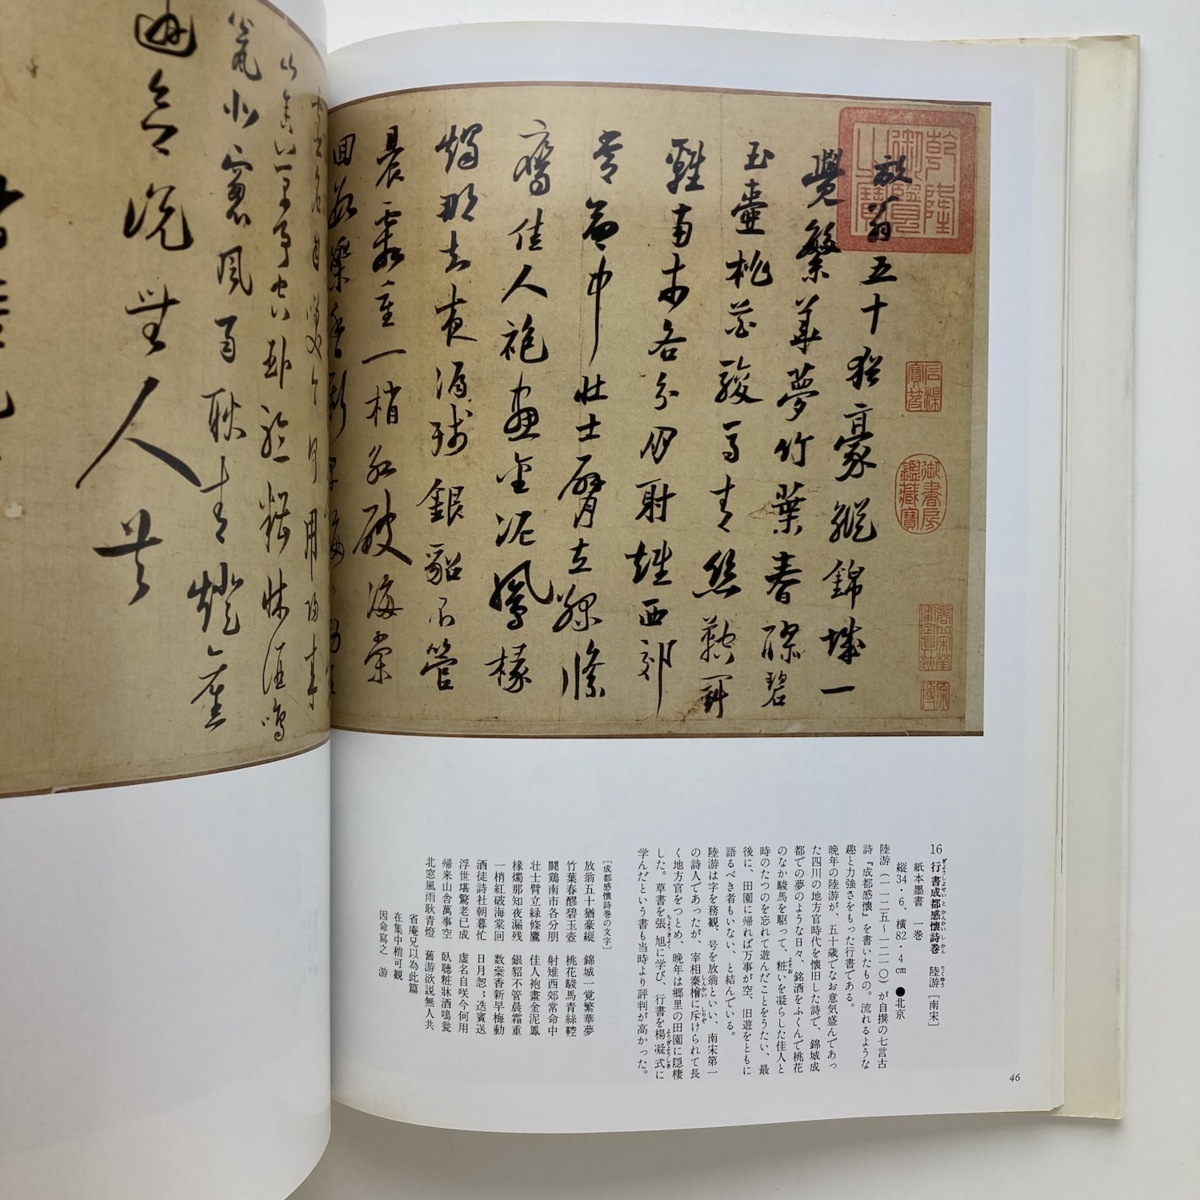 放翁五十猶豪縦錦城一
覺繁華夢竹葉春醪碧
玉壷桃花駿馬青絲鞚闘
雞南市各分朋射雉西郊
常命中壮士臂立緑絛
鷹佳人袍畫金泥鳳椽
燭那知夜漏残銀貂不管
晨霜重一梢紅破海棠
況無人共
北窓風雨耿青燈舊
乾隆御覽之寶
石渠寶笈
御書房鑑藏寶
16 行書成都感懐詩巻 陸游[南宋]
紙本墨書 一巻
縦34・6、横82・4cm ●北京
陸游(一一二五〜一二一〇)が自撰の七言古
詩『成都感懐』を書いたもの。流れるような
趣と力強さをもった行書である。
晩年の陸游が、五十歳でなお意気盛んであっ
た四川の地方官時代を懐旧した詩で、錦城成
都での夢のような日々、銘酒をふくんで桃花
のなか駿馬を駆って、粧いを凝らした佳人と
時のたつのを忘れて遊んだことをうたい、最
後に、田園に帰れば万事が空、旧遊をともに
語るべき者もいない、と結んでいる。
陸游は字を務観、号を放翁といい、南宋第一
の詩人であったが、宰相秦檜に斥けられて長
く地方官をつとめ、晩年は郷里の田園に隠棲
した。草書を張旭に学び、行書を楊凝式に
学んだという書も当時より評判が高かった。
[成都感懐詩巻の文字]
放翁五十猶豪縦 錦城一覚繁華夢
竹葉春醪碧玉壷 桃花駿馬青絲鞚
闘鶏南市各分朋 射雉西郊常命中
壮士臂立緑絛鷹 佳人袍畫金泥鳳
椽燭那知夜漏残 銀貂不管晨霜重
一梢紅破海棠回 数蘂香新早梅動
酒徒詩社朝暮忙 日月怱々迭賓送
浮世堪驚老已成 虚名自咲今何用
帰来山舎萬事空 臥聴粧牀酒鳴甕
北窓風雨耿青燈 舊游欲説無人共
省庵兄以為此篇
在集中稍可観
因命寫之 游
46